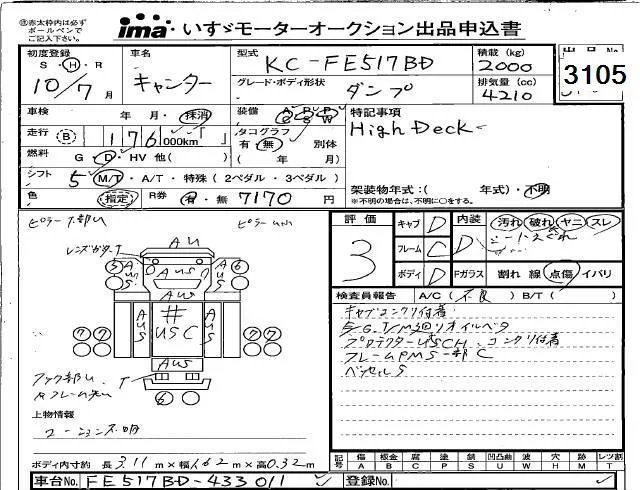 ㊟赤太枠内は必ず
ボールペンで
ご記入下さい。
ima・いすゞモーターオークション出品申込書
初度登録 車名 型式 積載 (kg) 出品No
S・H・R キャンター KC-FE517BD 2000 3105
10年7月 グレード・ボディ形状 ダンプ 排気量 (cc) 4210
車検 年 月・抹消 装備 A/C P/S P/W 特記事項
走行 B 176,000km タコグラフ High Deck
有・無 別体
燃料 G・D・HV 他( ) ( 年 月)
シフト 5 M/T・A/T・特殊(2ペダル・3ペダル) 架装物年式:( 年式)・不明
色 (指定) R券 有・無 7170円 ※不明の場合は、不明に○をする。
評価 キャブ D 内装 汚れ 破れ ヤニ スレ
3 フレーム C D
ボディ D Fガラス 割れ 線 点傷 イバリ
検査員報告 A/C(不良) B/T( )
キャブコンクリ付着
プロテクターUSCH、コンクリ付着
フレームPMS一部C
ベッセルS
AU
AUS
AUS
AUS
#
USC
AUS
AUS
AUS
T
3 6
7 7 7 7
6
上物情報
ボディ内寸約 長3.11m×幅1.62m×高0.32m
記号 傷A 板金B 腐C 塗P 錆S 凹凸曲U 波W 穴H 跡M レンズ割T
車台No. FE517BD-433011 登録No.